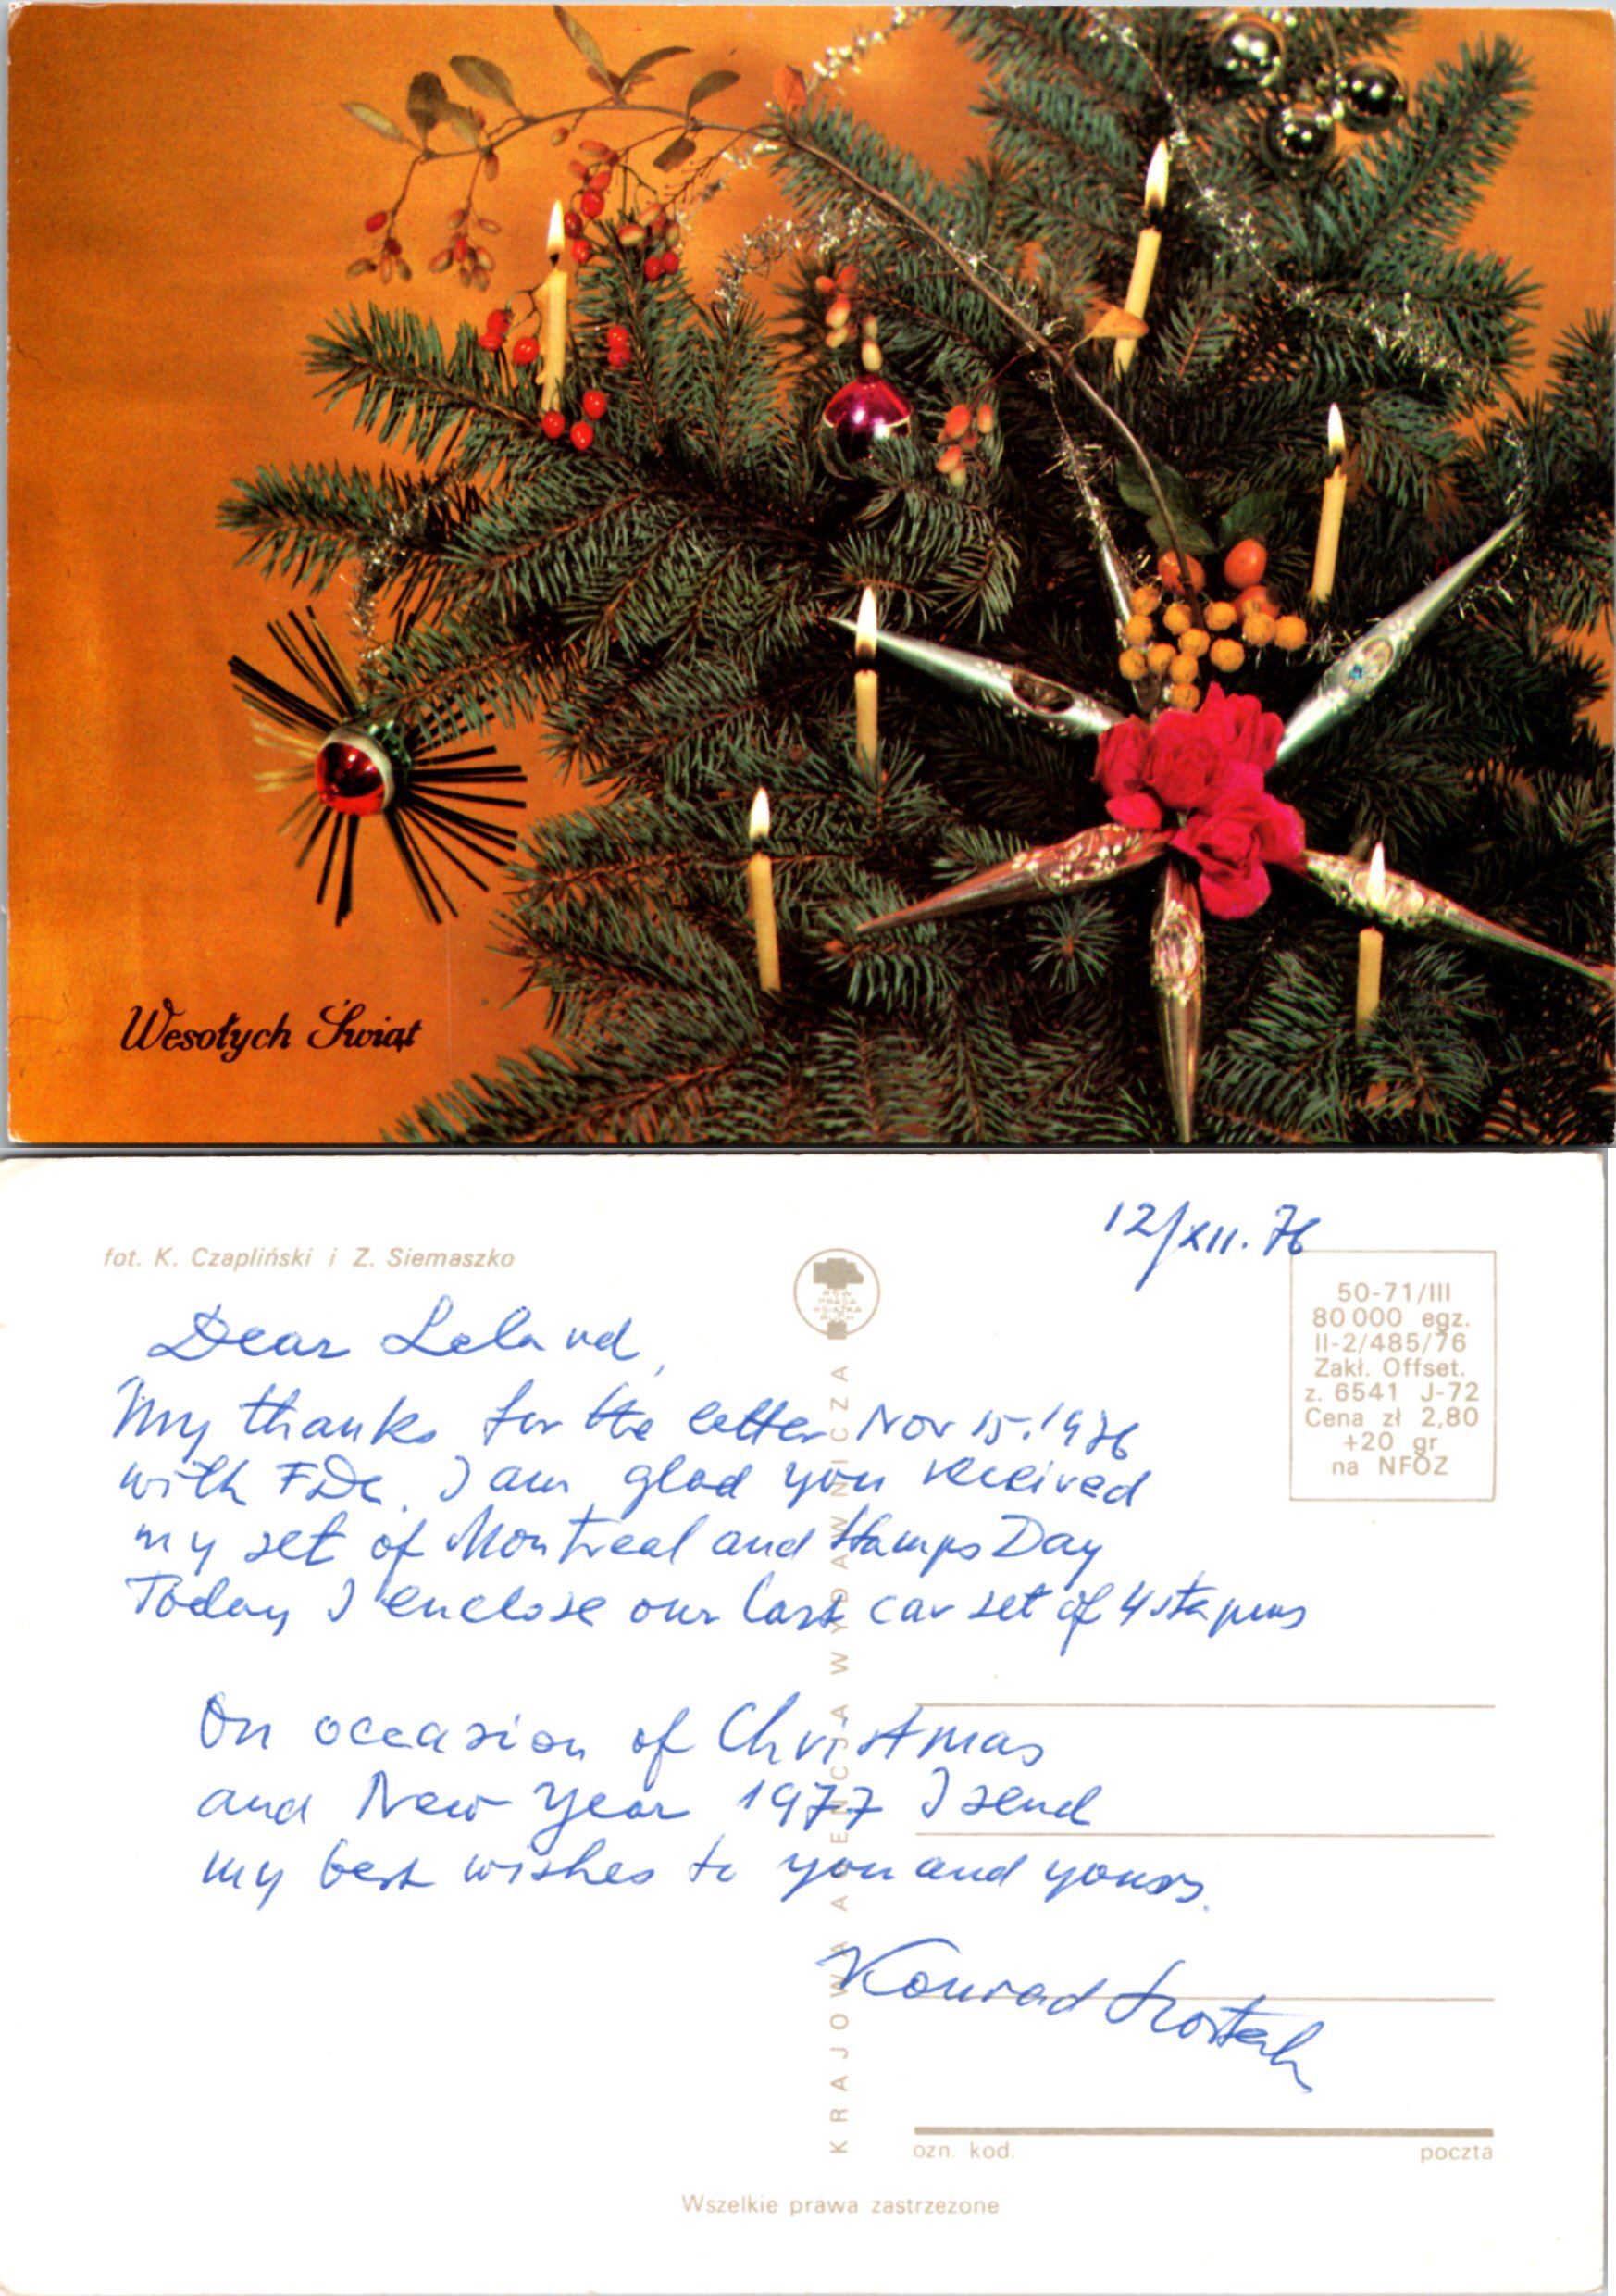 Wesołych Świąt
12/XII.76
fot. K. Czapliński i Z. Siemaszko
RSW
PRASA
KSIĄŻKA
RUCH
50-71/III
80 000 egz.
II-2/485/76
Zakł. Offset.
z. 6541 J-72
Cena zł 2,80
+20 gr
na NFOZ
Dear Leland,
My thanks for the letter Nov 15.1976
with FDC. I am glad you received
my set of Montreal and Stamps Day
Today I enclose our last car set of 4 stamps
On occasion of Christmas
and New Year 1977 I send
my best wishes to you and yours.
Konrad
KRAJOWA AGENCJA WYDAWNICZA
ozn. kod. poczta
Wszelkie prawa zastrzeżone